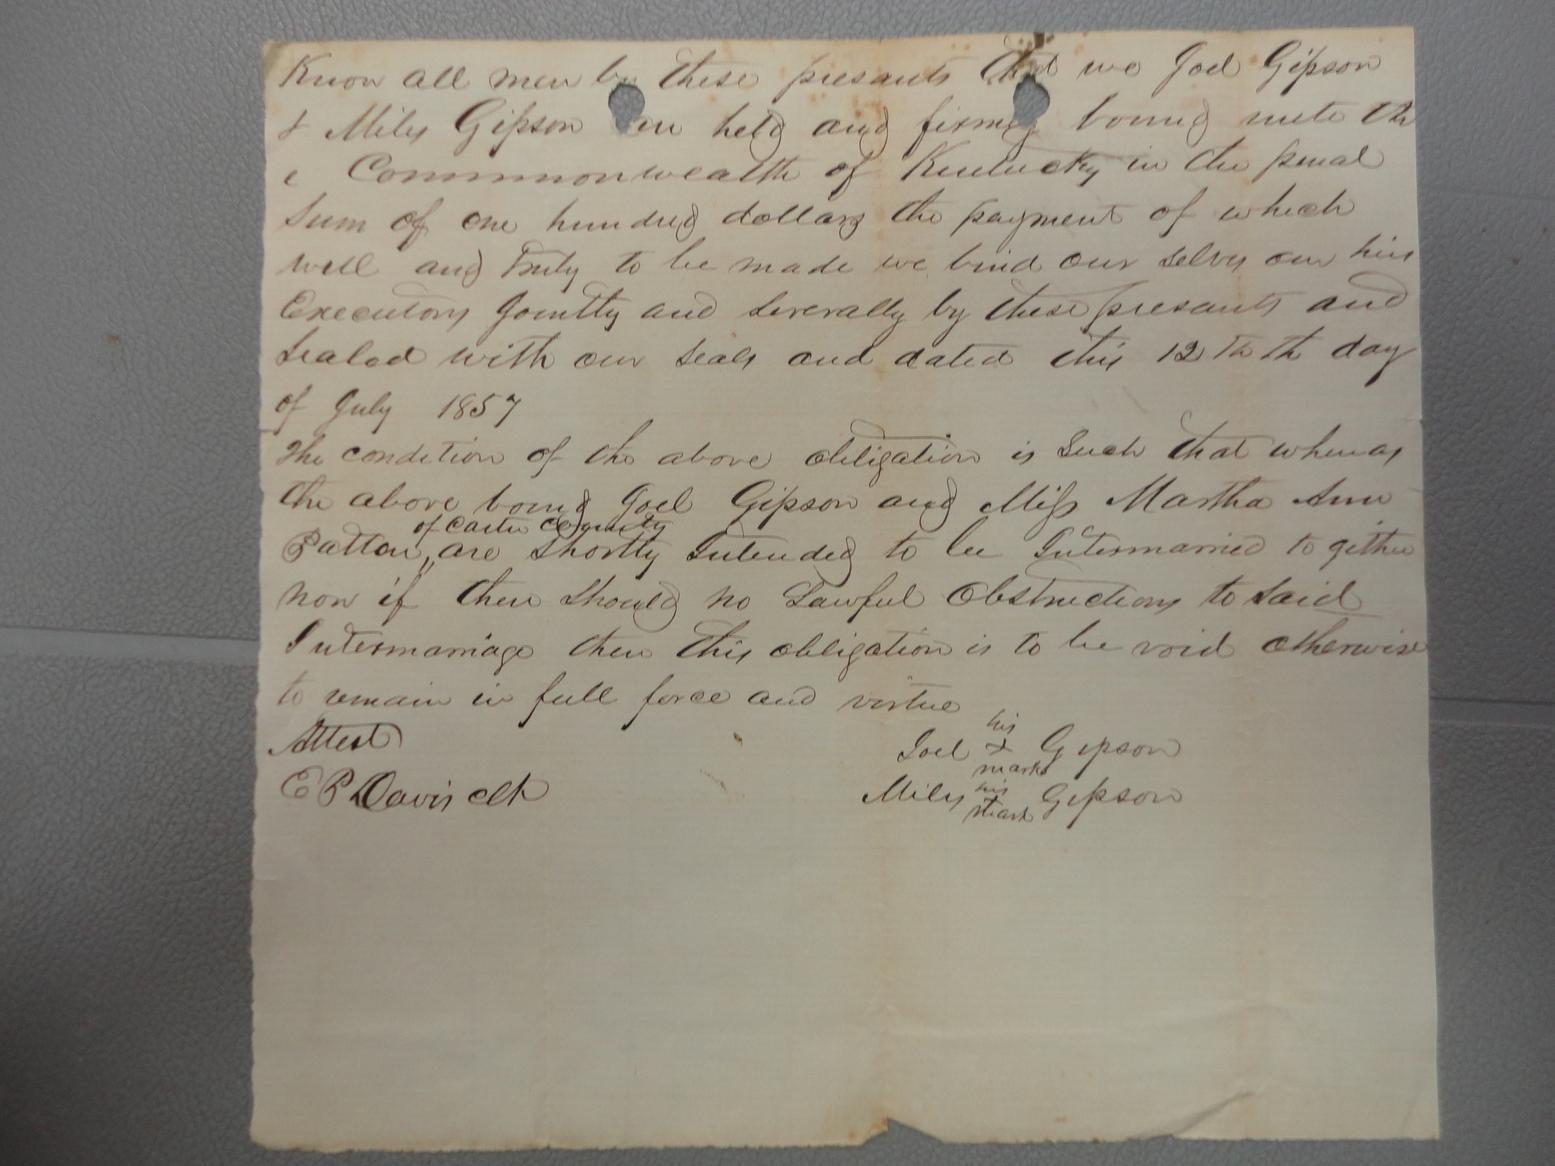 Know all men by these presants that we Joel Gipson
& Miles Gipson are held and firmly bound unto th
e Commmonwealth of Kentucky in the penal
Sum of one hundred dollars the payment of which
well and Truly to be made we bind our selves our heirs
Executors Jointly and Severally by these presants and
Sealed with our seals and dated this 12 Th th day
of July 1857
The condition of the above obligation is Such that whereas
the above bound Joel Gipson and Miss Martha Ann
of Carter County
Patton " are Shortly Intended to be Intermarried to gether
now if there should no Lawful Obstructions to said
Intermarriage then this obligation is to be void otherwise
to remain in full force and virtue
Attest
his
Joel x Gipson
mark
E P Davis clk
Miles his Gipson
mark